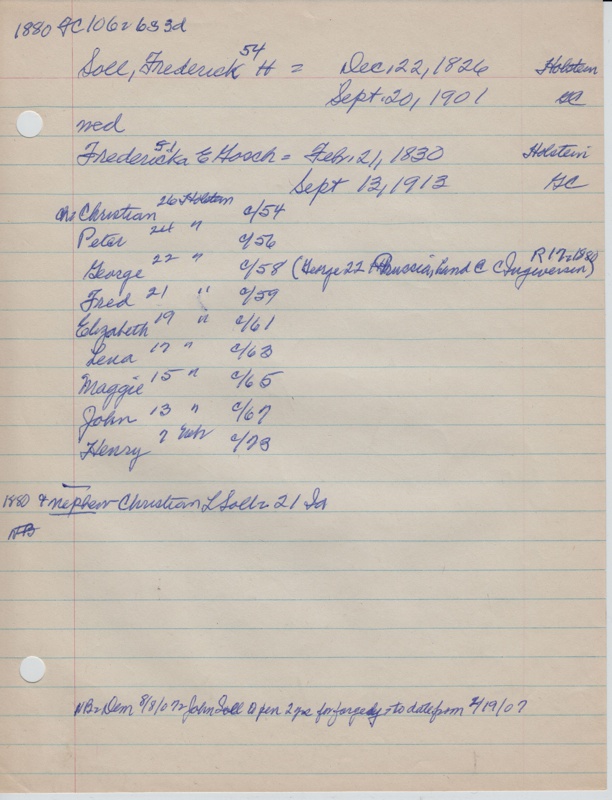 1880 GC 106 = 633d
Soll, Frederick 54 H = Dec. 22, 1826 Holstein
Sept. 20, 1901 GC
wed
Fredericka 51 E Gosch = Feb. 21, 1830 Holstein
Sept 13, 1913 GC
Ch: Christian 26 Holstein c/54
Peter 24 " c/56
R 17 = 1880
George 22 " c/58 (George 22 Prussia, hand C C Ingwersen)
Fred 21 " c/59
Elizabeth 19 " c/61
Lena 17 " c/63
Maggie 15 " c/65
John 13 " c/67
Henry 7 c/73
1880 & nephew Christian L Soll = 21 Ia
NB
NB = Dem 8/8/07 = John Soll 2 yrs for forgery = to date from 2/19/07